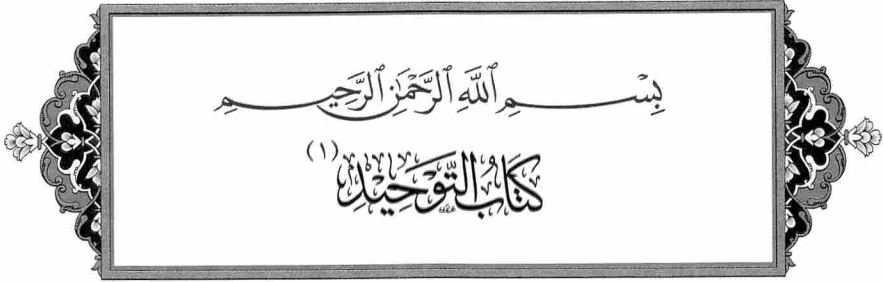 بِسْمِ ٱللَّهِ ٱلرَّحْمَٰنِ ٱلرَّحِيمِ
كِتَابُ التَّوْحِيْدِ (١)